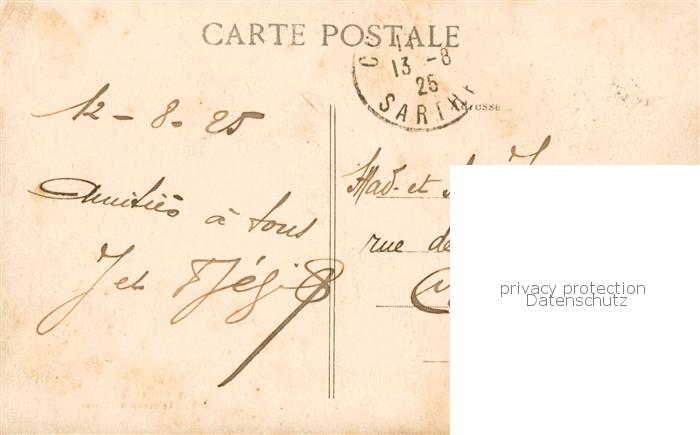 CARTE POSTALE
13 -8
25
SARTHE
Adresse
12 - 8 - 25
Amitiés à tous
J et
Mad. et
rue de
privacy protection
Datenschutz